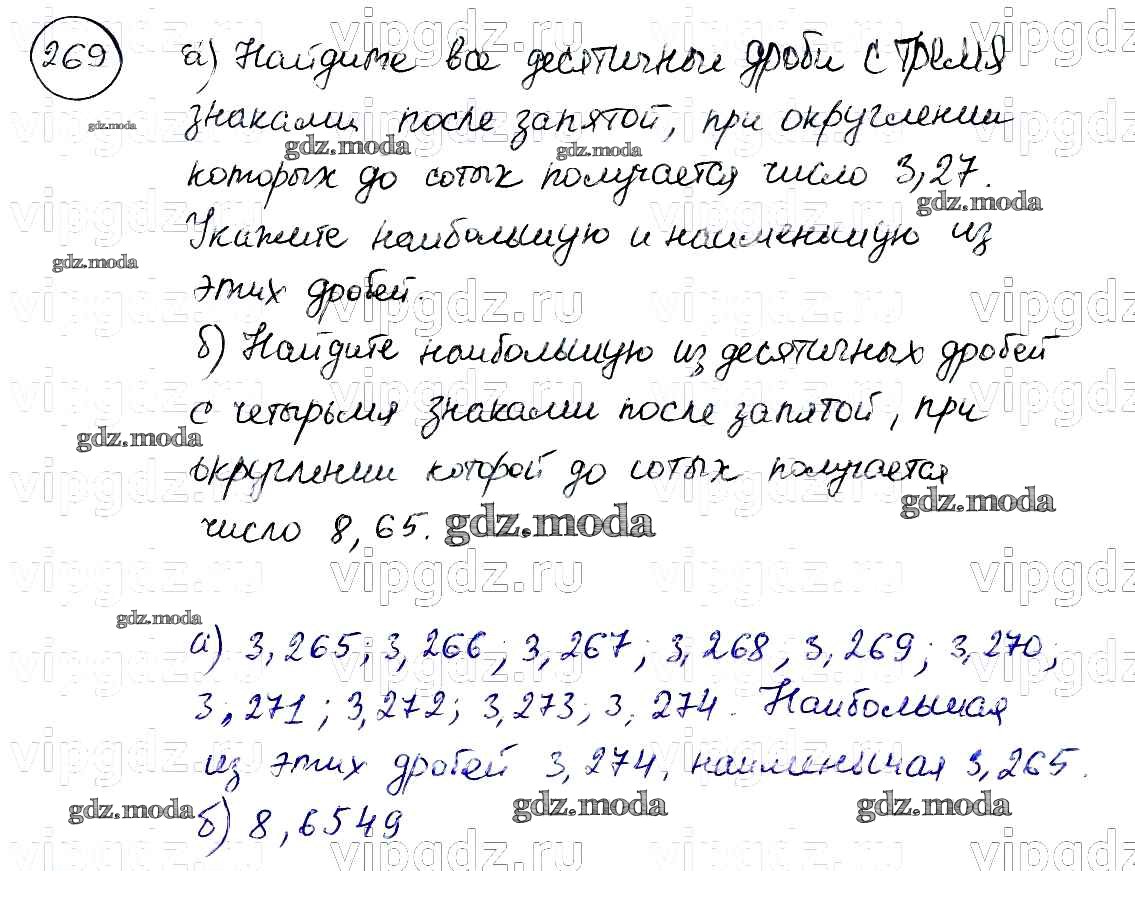 269 а) Найдите все десятичные дроби с тремя
знаками после запятой, при округлении
которых до сотых получается число 3,27.
Укажите наибольшую и наименьшую из
этих дробей.
б) Найдите наибольшую из десятичных дробей
с четырьмя знаками после запятой, при
округлении которой до сотых получается
число 8,65.
а) 3,265; 3,266; 3,267; 3,268, 3,269; 3,270;
3,271; 3,272; 3,273; 3,274. Наибольшая
из этих дробей 3,274, наименьшая 3,265.
б) 8,6549
vipgdz.ru
gdz.moda